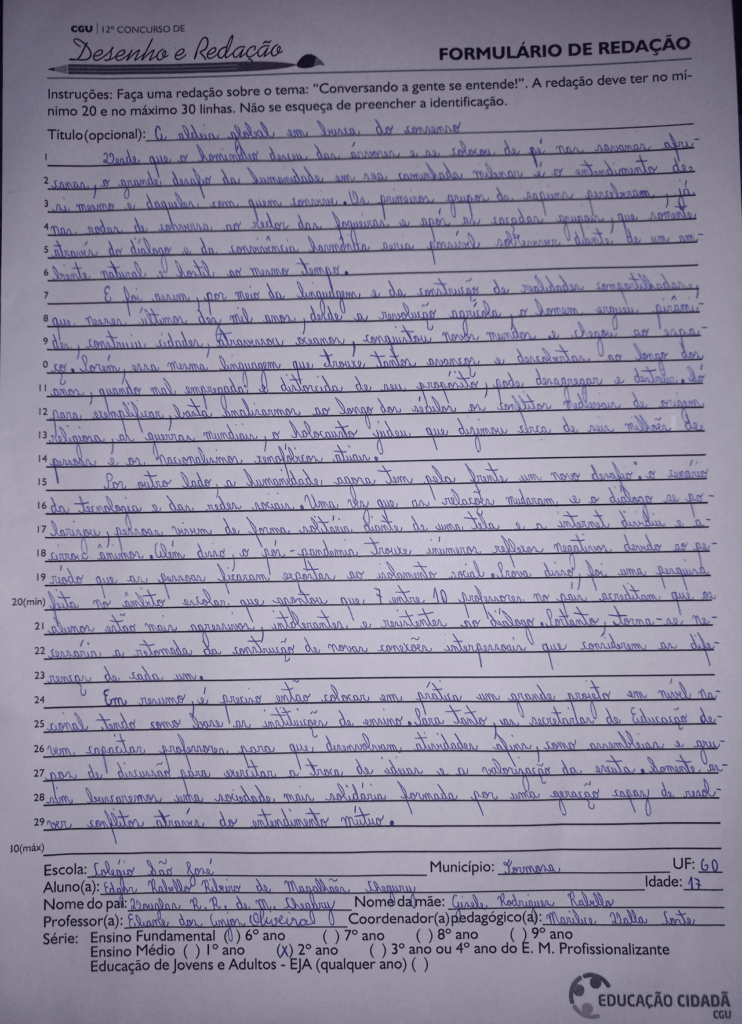 CGU | 12º CONCURSO DE
Desenho e Redação
FORMULÁRIO DE REDAÇÃO
Instruções: Faça uma redação sobre o tema: "Conversando a gente se entende!". A redação deve ter no mí-
nimo 20 e no máximo 30 linhas. Não se esqueça de preencher a identificação.
Título(opcional): A aldeia global em busca do consenso
1 Desde que o hominídio desceu das árvores e se colocou de pé nas savanas afri-
2 canas, o grande desafio da humanidade em sua caminhada milenar é o entendimento de
3 si mesmo e daqueles com quem convive. Os primeiros grupos de sapiens perceberam, já
4 nas rodas de conversa ao redor das fogueiras e após as caçadas grupais, que somente
5 através do diálogo e da convivência harmônica seria possível sobreviver diante de um am-
6 biente natural e hostil ao mesmo tempo.
7 E foi assim, por meio da linguagem e da construção de realidades compartilhadas,
8 que nesses últimos dez mil anos, desde a revolução agrícola, o homem ergueu pirâmi-
9 des, construiu cidades, atravessou oceanos, conquistou novos mundos e chegou ao espa-
0 ço. Porém, essa mesma linguagem que trouxe tantos avanços e descobertas ao longo dos
11 anos, quando mal empregada e distorcida de seu propósito, pode desagregar e destruir. Só
12 para exemplificar, basta analisarmos ao longo dos séculos os conflitos medievais de origem
13 religiosa, as guerras mundiais, o holocausto judeu que dizimou cerca de seis milhões de
14 pessoas e os nacionalismos xenofóbicos atuais.
15 Por outro lado, a humanidade agora tem pela frente um novo desafio: o cenário
16 da tecnologia e das redes sociais. Uma vez que as relações mudaram e o diálogo se po-
17 larizou, pessoas vivem de forma solitária diante de uma tela e a internet dividiu e a-
18 cirrou ânimos. Além disso, o pós-pandemia trouxe inúmeros reflexos negativos devido ao pe-
19 ríodo que as pessoas ficaram expostas ao isolamento social. Prova disso, foi uma pesquisa
20(mín) feita no âmbito escolar que apontou que 7 entre 10 professores no país acreditam que os
21 alunos estão mais agressivos, intolerantes e resistentes no diálogo. Portanto, torna-se ne-
22 cessária a retomada da construção de novas conexões interpessoais que considerem as dife-
23 renças de cada um.
24 Em resumo, é preciso então colocar em prática um grande projeto em nível na-
25 cional tendo como base as instituições de ensino. Para tanto, as secretarias de Educação de-
26 vem capacitar professores para que desenvolvam atividades afins, como assembleias e gru-
27 pos de discussão para exercitar a troca de ideias e a valorização da escuta. Somente as-
28 sim buscaremos uma sociedade mais solidária formada por uma geração capaz de resol-
29 ver conflitos através do entendimento mútuo.
30(máx)
Escola: Colégio São José Município: Formosa UF: GO
Aluno(a): Rabello Ribeiro de Magalhães Chegury Idade: 17
Nome do pai: Douglas R. R. de M. Chegury Nome da mãe: Gisele Rodrigues Rabello
Professor(a): Eliane dos Anjos Oliveira Coordenador(a) pedagógico(a): Marilice Dalla Corte
Série: Ensino Fundamental ( ) 6º ano ( ) 7º ano ( ) 8º ano ( ) 9º ano
Ensino Médio ( ) 1º ano (X) 2º ano ( ) 3º ano ou 4º ano do E. M. Profissionalizante
Educação de Jovens e Adultos - EJA (qualquer ano) ( )
EDUCAÇÃO CIDADÃ
CGU